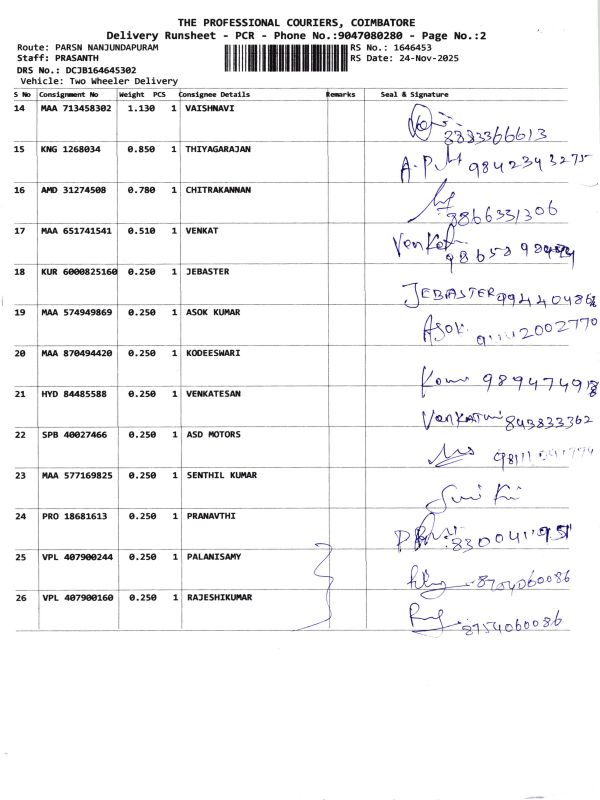 THE PROFESSIONAL COURIERS, COIMBATORE
Delivery Runsheet - PCR - Phone No.:9047080280 - Page No.:2
Route: PARSN NANJUNDAPURAM RS No.: 1646453
Staff: PRASANTH RS Date: 24-Nov-2025
DRS No.: DCJB164645302
Vehicle: Two Wheeler Delivery
S No Consignment No Weight PCS Consignee Details Remarks Seal & Signature
14 MAA 713458302 1.130 1 VAISHNAVI
8883366613
15 KNG 1268034 0.850 1 THIYAGARAJAN
9842343275
16 AMD 31274508 0.780 1 CHITRAKANNAN
8866331306
17 MAA 651741541 0.510 1 VENKAT
Venkat
18 KUR 6000825160 0.250 1 JEBASTER
JEBASTER
19 MAA 574949869 0.250 1 ASOK KUMAR
Asok
20 MAA 870494420 0.250 1 KODEESWARI
21 HYD 84485588 0.250 1 VENKATESAN
843833362
22 SPB 40027466 0.250 1 ASD MOTORS
23 MAA 577169825 0.250 1 SENTHIL KUMAR
24 PRO 18681613 0.250 1 PRANAVTHI
25 VPL 407900244 0.250 1 PALANISAMY
8754060086
26 VPL 407900160 0.250 1 RAJESHIKUMAR
8754060086